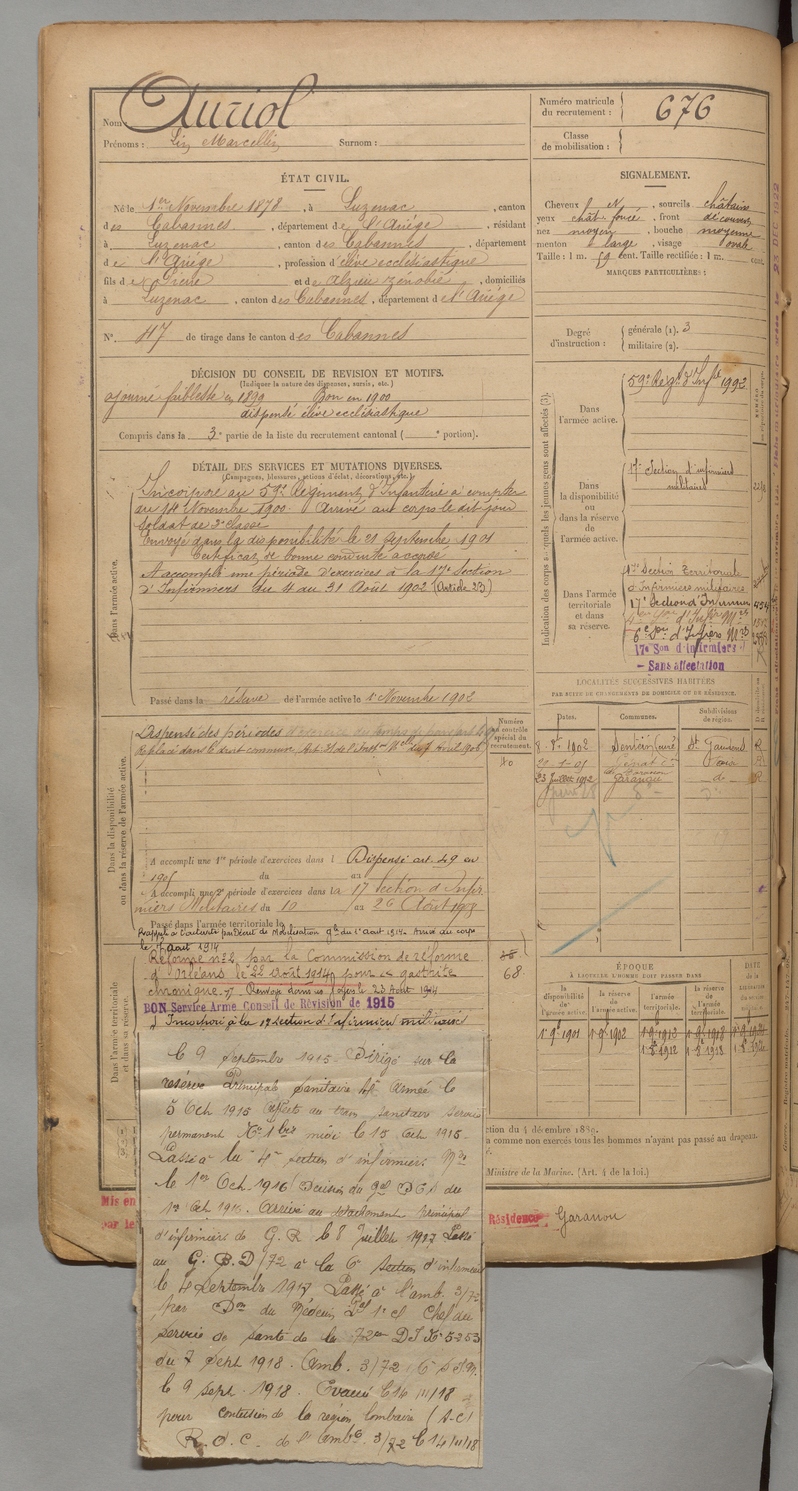 Nom : Auriol
Prénoms : Lin Marcellin Surnom :
Numéro matricule du recrutement : 676
Classe de mobilisation :
ÉTAT CIVIL.
Né le 1er Novembre 1878, à Luzenac, canton
des Cabannes, département de l'Ariège, résidant
à Luzenac, canton des Cabannes, département
de l'Ariège, profession d'élève ecclésiastique
fils de et de , domiciliés
à Luzenac, canton des Cabannes, département de l'Ariège
N° 47 de tirage dans le canton des Cabannes
SIGNALEMENT.
Cheveux N, sourcils châtains
yeux chât. foncé, front découvert
nez moyen, bouche moyenne
menton large, visage ovale
Taille : 1 m. 59 cent. Taille rectifiée : 1 m. cent.
MARQUES PARTICULIÈRES :
Degré d'instruction : générale (1). 3
militaire (2).
DÉCISION DU CONSEIL DE REVISION ET MOTIFS.
(Indiquer la nature des dispenses, sursis, etc.)
ajourné faiblesse en 1899 Bon en 1900
dispensé élève ecclésiastique
Compris dans la 3e partie de la liste du recrutement cantonal ( e portion).
DÉTAIL DES SERVICES ET MUTATIONS DIVERSES.
(Campagnes, blessures, actions d'éclat, décorations, etc.)
Dans l'armée active.
Incorporé au 59e Régiment d'Infanterie à compter
du 14 Novembre 1900. Arrivé au corps le dit jour
soldat de 2e classe
Envoyé dans la disponibilité le 21 Septembre 1901
Certificat de bonne conduite accordé
A accompli une période d'exercices à la 17e Section
d'Infirmiers du 4 au 31 Août 1902 (Article 23)
Passé dans la réserve de l'armée active le 1er Novembre 1902
Indication des corps auxquels les jeunes gens sont affectés (3).
Dans l'armée active.
59e Régt d'Infie 1992
Dans la disponibilité ou dans la réserve de l'armée active.
17e Section d'infirmiers
militaires
Dans l'armée territoriale et dans sa réserve.
17e Section Territoriale
d'Infirmiers militaires
17e Section d'Infirmiers
6e Son d'Infiers Mres
17e Son d'infirmiers
- Sans affectation
LOCALITÉS SUCCESSIVES HABITÉES
PAR SUITE DE CHANGEMENTS DE DOMICILE OU DE RÉSIDENCE.
Dates. Communes. Subdivisions de région.
1902 Sentein (curé) St Gaudens R
23 Juillet 1912 Garanou do R
Dans la disponibilité ou dans la réserve de l'armée active.
Numéro au contrôle spécial du recrutement.
Dispensé des périodes d'exercices
Replacé dans le droit commun Avril 1906
A accompli une 1re période d'exercices dans l Dispensé art. 49 en
1905 du au
A accompli une 2e période d'exercices dans la 17 Section d'Infir
miers Militaires du 10 au 26 Août 1908
Passé dans l'armée territoriale le
Rappelé à l'activité par Décret de Mobilisation gle du 1er Août 1914. Arrivé au corps
le 7 août 1914
Dans l'armée territoriale et dans sa réserve.
Réformé n° 2 par la Commission de réforme
d'Orléans le 22 août 1914 pour gastrite
chronique. Renvoyé dans ses foyers le 23 Août 1914
BON Service Armé Conseil de Révision de 1915
Inscrit à la 17 section d'Infirmiers militaires
68
ÉPOQUE
À LAQUELLE L'HOMME DOIT PASSER DANS
la disponibilité de l'armée active. la réserve de l'armée active. l'armée territoriale. la réserve de l'armée territoriale.
DATE de la
1.9bre 1901 1.9bre 1902 1.9bre 1912 1.9bre 1918
1.8.1912 1.8.1918
le 9 septembre 1915 Dirigé sur la
réserve Principale sanitaire armée le
5 Oct 1915 affecté au train sanitaire service
permanent N° 1 bis midi le 15 Oct 1915.
Passé à la 4e section d'infirmiers Mres
le 1er Oct 1916 Décision du gal D.E.S du
1er Oct 191 . Arrivé au détachement principal
d'infirmiers de G.R. le 8 Juillet 1917 Passé
au G.B.D/72 à la 6e section d'infirmiers
le 4 Septembre 1917 Passé à l'amb. 3/72
par Don du Médecin Pal 1e cl Chef du
service de santé de la 72e D.I. N° 5253
du 7 Sept 1918. Amb. 3/72
le 9 sept. 1918. Evacué le 14/11/18
pour contusion de la région lombaire (S.C)
R.d.C. de l'Ambce 3/72 le 14/11/18
ction du 4 décembre 1889.
a comme non exercés tous les hommes n'ayant pas passé au drapeau.
Ministre de la Marine. (Art. 4 de la loi.)
Mis en
par le
Résidence Garanou